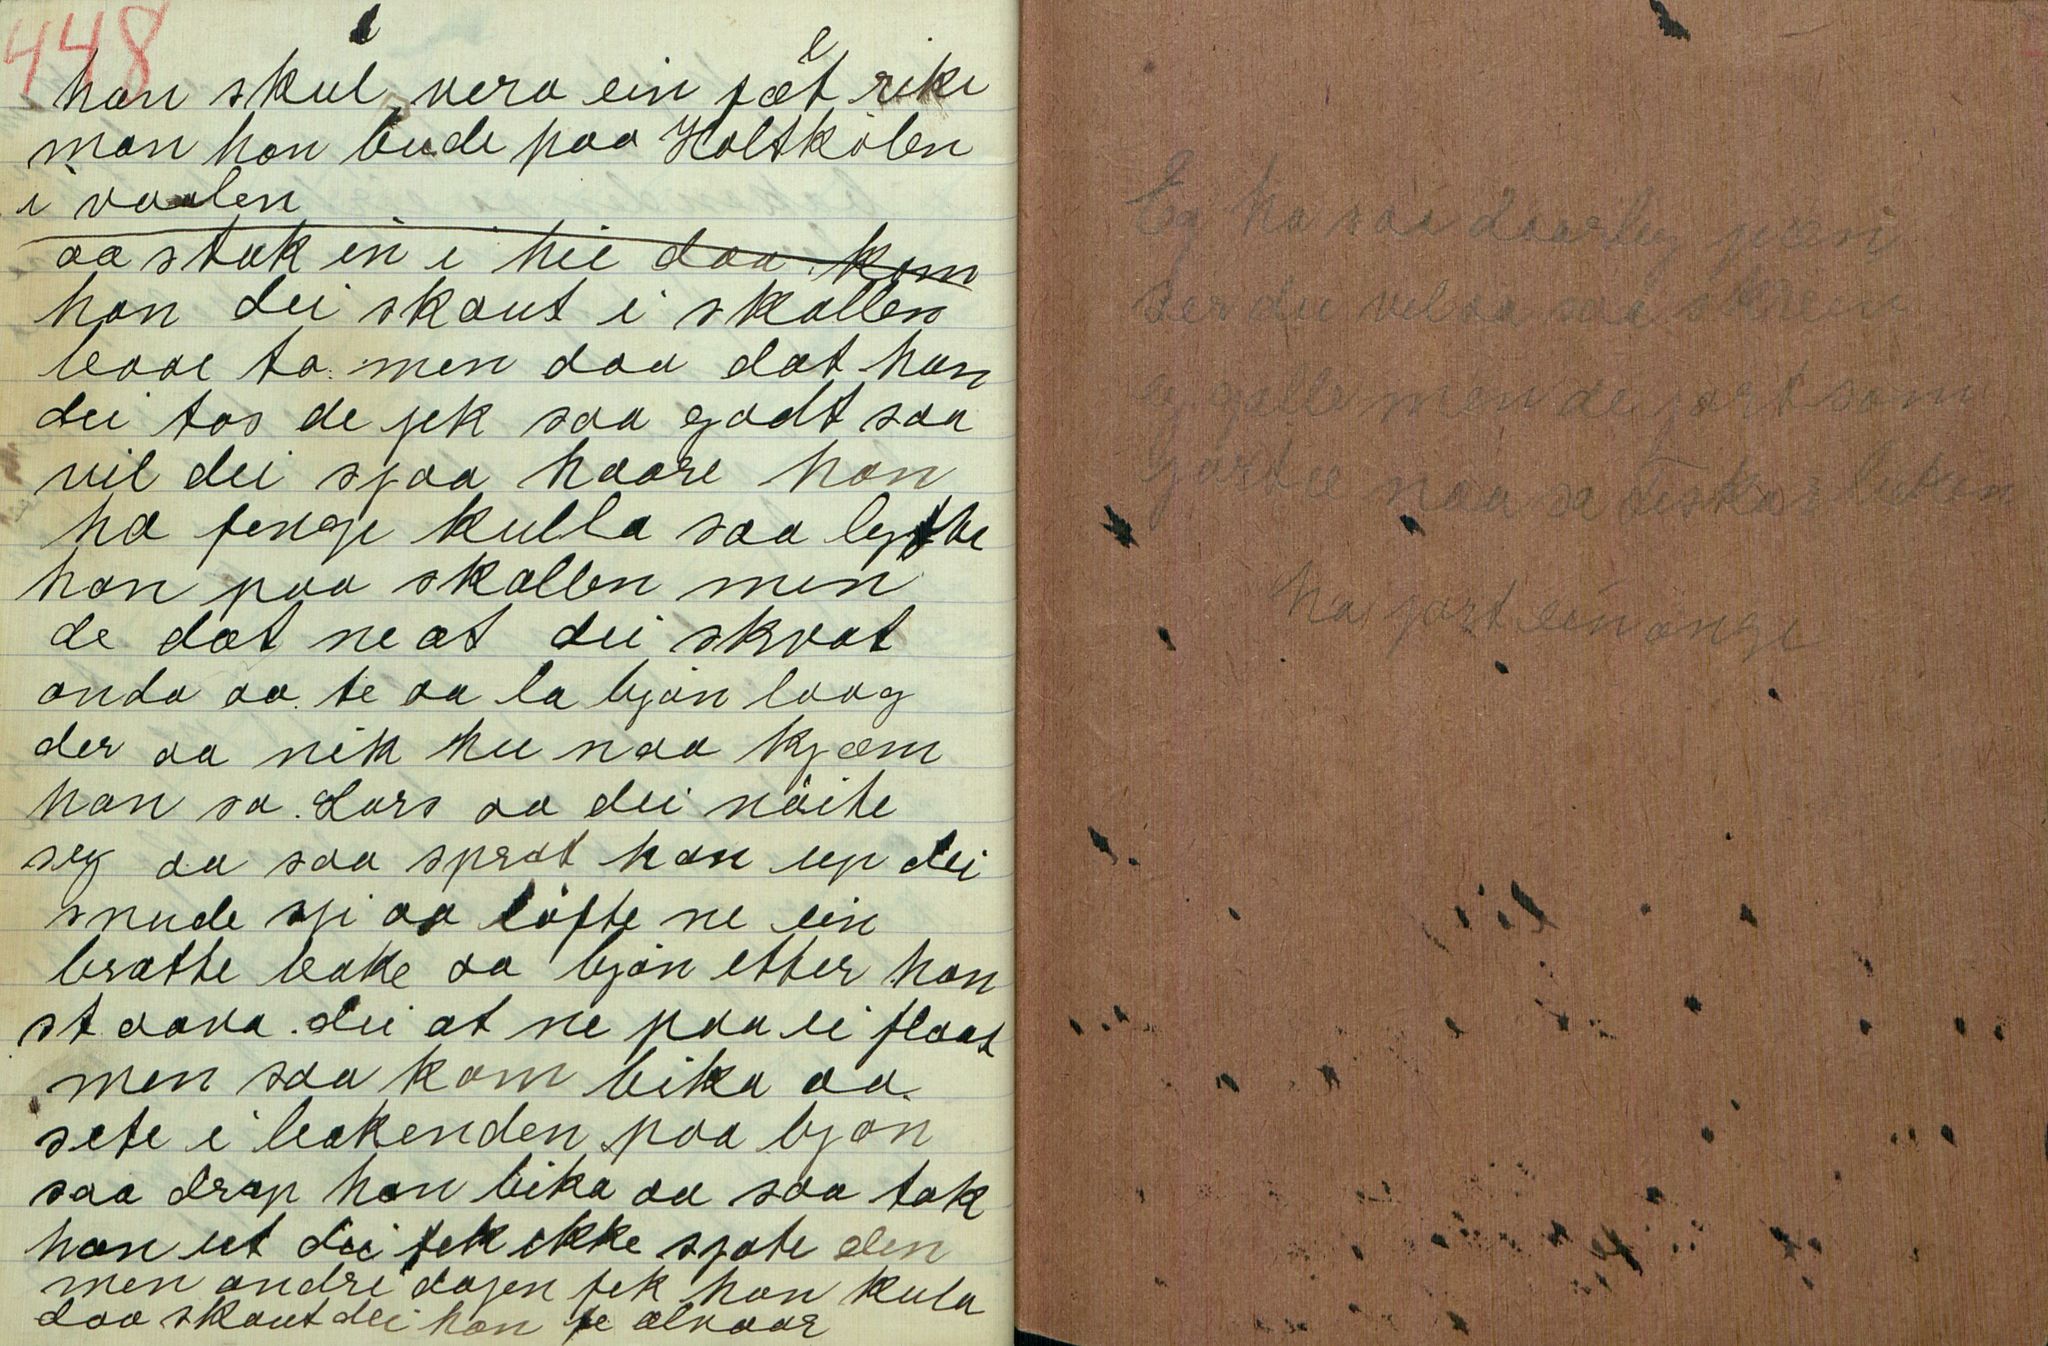 448
han skul vera ein fælt rike
man han bude paa Holtkölen
i vaalen
aa stak in i hie daa kom
han dei skaut i skallen
baae to men daa dat han
dei tos de gek saa godt saa
vil dei sjaa haare han
ha fenge kulla saa lyfte
han paa skallen men
de dat ne at dei skvat
onda aa te aa la bjön laag
der aa nik hu naa kjæm
han sa Lars aa dei nöite
seg aa saa sprat han up dei
snude sji aa löfte ne ein
bratte bake aa bjön etter han
st aava dei at ne paa ei flaat
men saa kom bika aa
sete i bakenden paa bjön
saa drap han bika aa saa tok
han ut dei fek ikke sjote den
men andre dagen fek han kula
daa skaut dei han te alvaar
Eg ha saa daarleg pæn
ser du vel aa saa skreiv
e galle men de gort som
gort e naa
ha gort ein onge